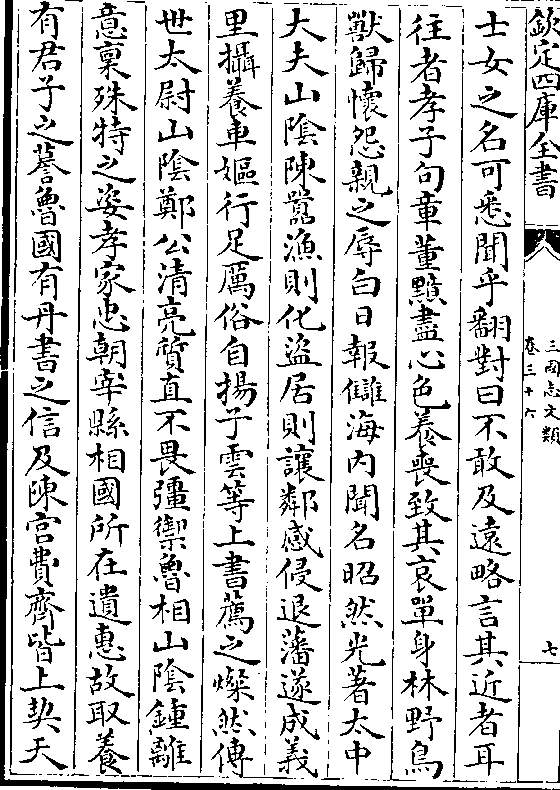 欽定四庫全書
三國志文類
卷三十六
七
士女之名可悉聞乎翻對曰不敢及遠略言其近者耳
往者孝子句章董黯盡心色養喪致其哀單身林野鳥
獸歸懷怨親之辱白日報讎海内聞名昭然光著太中
大夫山陰陳囂漁則化盜居則讓鄰感侵退藩遂成義
里攝養車嫗行足厲俗自揚子雲等上書薦之燦然傳
世太尉山陰鄭公清亮質直不畏彊禦魯相山陰鍾離
意稟殊特之姿孝家忠朝宰縣相國所在遺惠故取養
有君子之謩魯國有丹書之信及陳宫費齊皆上契天